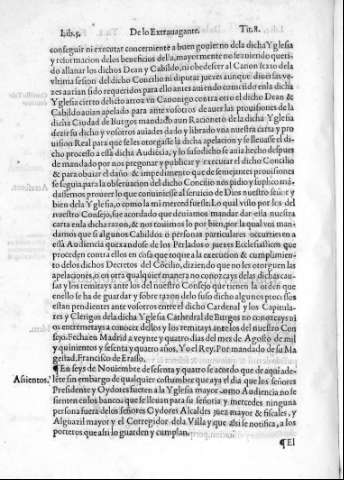 Lib. 5. De lo Extrauagante. Tit. 8.
conseguir ni executar concerniente a buen gouierno dela dicha Yglesia
y reformacion delos beneficios della, mayormente no hauiendo querido
allanar los dichos Dean y Cabildo, ni obedescer al Canon sexto dela
vltima sesion del dicho Concilio ni diputar jueces aunque diuersas veces
auian sido requeridos para ello antes auiendo conuenido enla dicha
Yglesia cierto delicto atroz vn Canonigo contra otro el dicho Dean &
Cabildo auian apelado para ante vosotros de auer las prouisiones de la
dicha Ciudad de Burgos mandado a un Racionero dela dicha Yglesia
dezir su dicho y vosotros auiades dado y librado vna nuestra carta y prouision
Real para que se les otorgasse la dicha apelacion y se lleuasse el dicho
processo a essa dicha Audiencia, y lo susodicho se auia hecho despues
de mandado por nos pregonar y publicar y executar el dicho Concilio
& para obuiar el daño & impedimento que de semejantes prouisiones
se seguia para la obseruacion del dicho Concilio nos pidio y suplico mandassemos
proueer lo que conuiniesse al seruicio de Dios nuestro señor y
bien dela Yglesia, o como la mi merced fuesse. Lo qual visto por los del
nuestro Consejo, fue acordado que deuiamos mandar dar esta nuestra
carta enla dicha razon, & nos touimos lo por bien, por la qual vos mandamos
que si algunos Cabildos o personas particulares occurrieren a
essa Audiencia quexandose de los Perlados o jueces Ecclesiasticos que
proceden contra ellos en cosa que toque a la execucion & cumplimiento
delos dichos Decretos del Cocilio, diziendo que no les otorguen las
apelaciones, o en otra qualquier manera no conozcays delas dichas causas
y los remitays ante los del nuestro Consejo que tienen la orden que
enello se ha de guardar y sobre razon delo suso dicho algunos processos
estan pendientes ante vosotros entre el dicho Cardenal y los Capitulares
y Clerigos dela dicha Yglesia Cathedral de Burgos no conozcays ni
os entremetays a conocer dellos y los remitays ante los del nuestro Consejo.
Fecha en Madrid a veynte y quatro dias del mes de Agosto de mil
y quinientos y sesenta y quatro años. Yo el Rey. Por mandado de su Magestad.
Francisco de Erasso.
¶ En seys de Nouiembre de sesenta y quatro se acordo que de aqui adelãte
Assientos. sin embargo de qualquier costumbre que aya el dia que los señores
Presidente y Oydores fueren a la Yglesia mayor como Audiencia no se
sienten en los bancos que se lleuan para su señoria y mercedes ninguna
persona fuera delos señores Oydores Alcaldes juez mayor & fiscales, y
Alguazil mayor y el Corregidor dela Villa y que assi se notifica, a los
porteros que assi lo guarden y cumplan.
¶ El